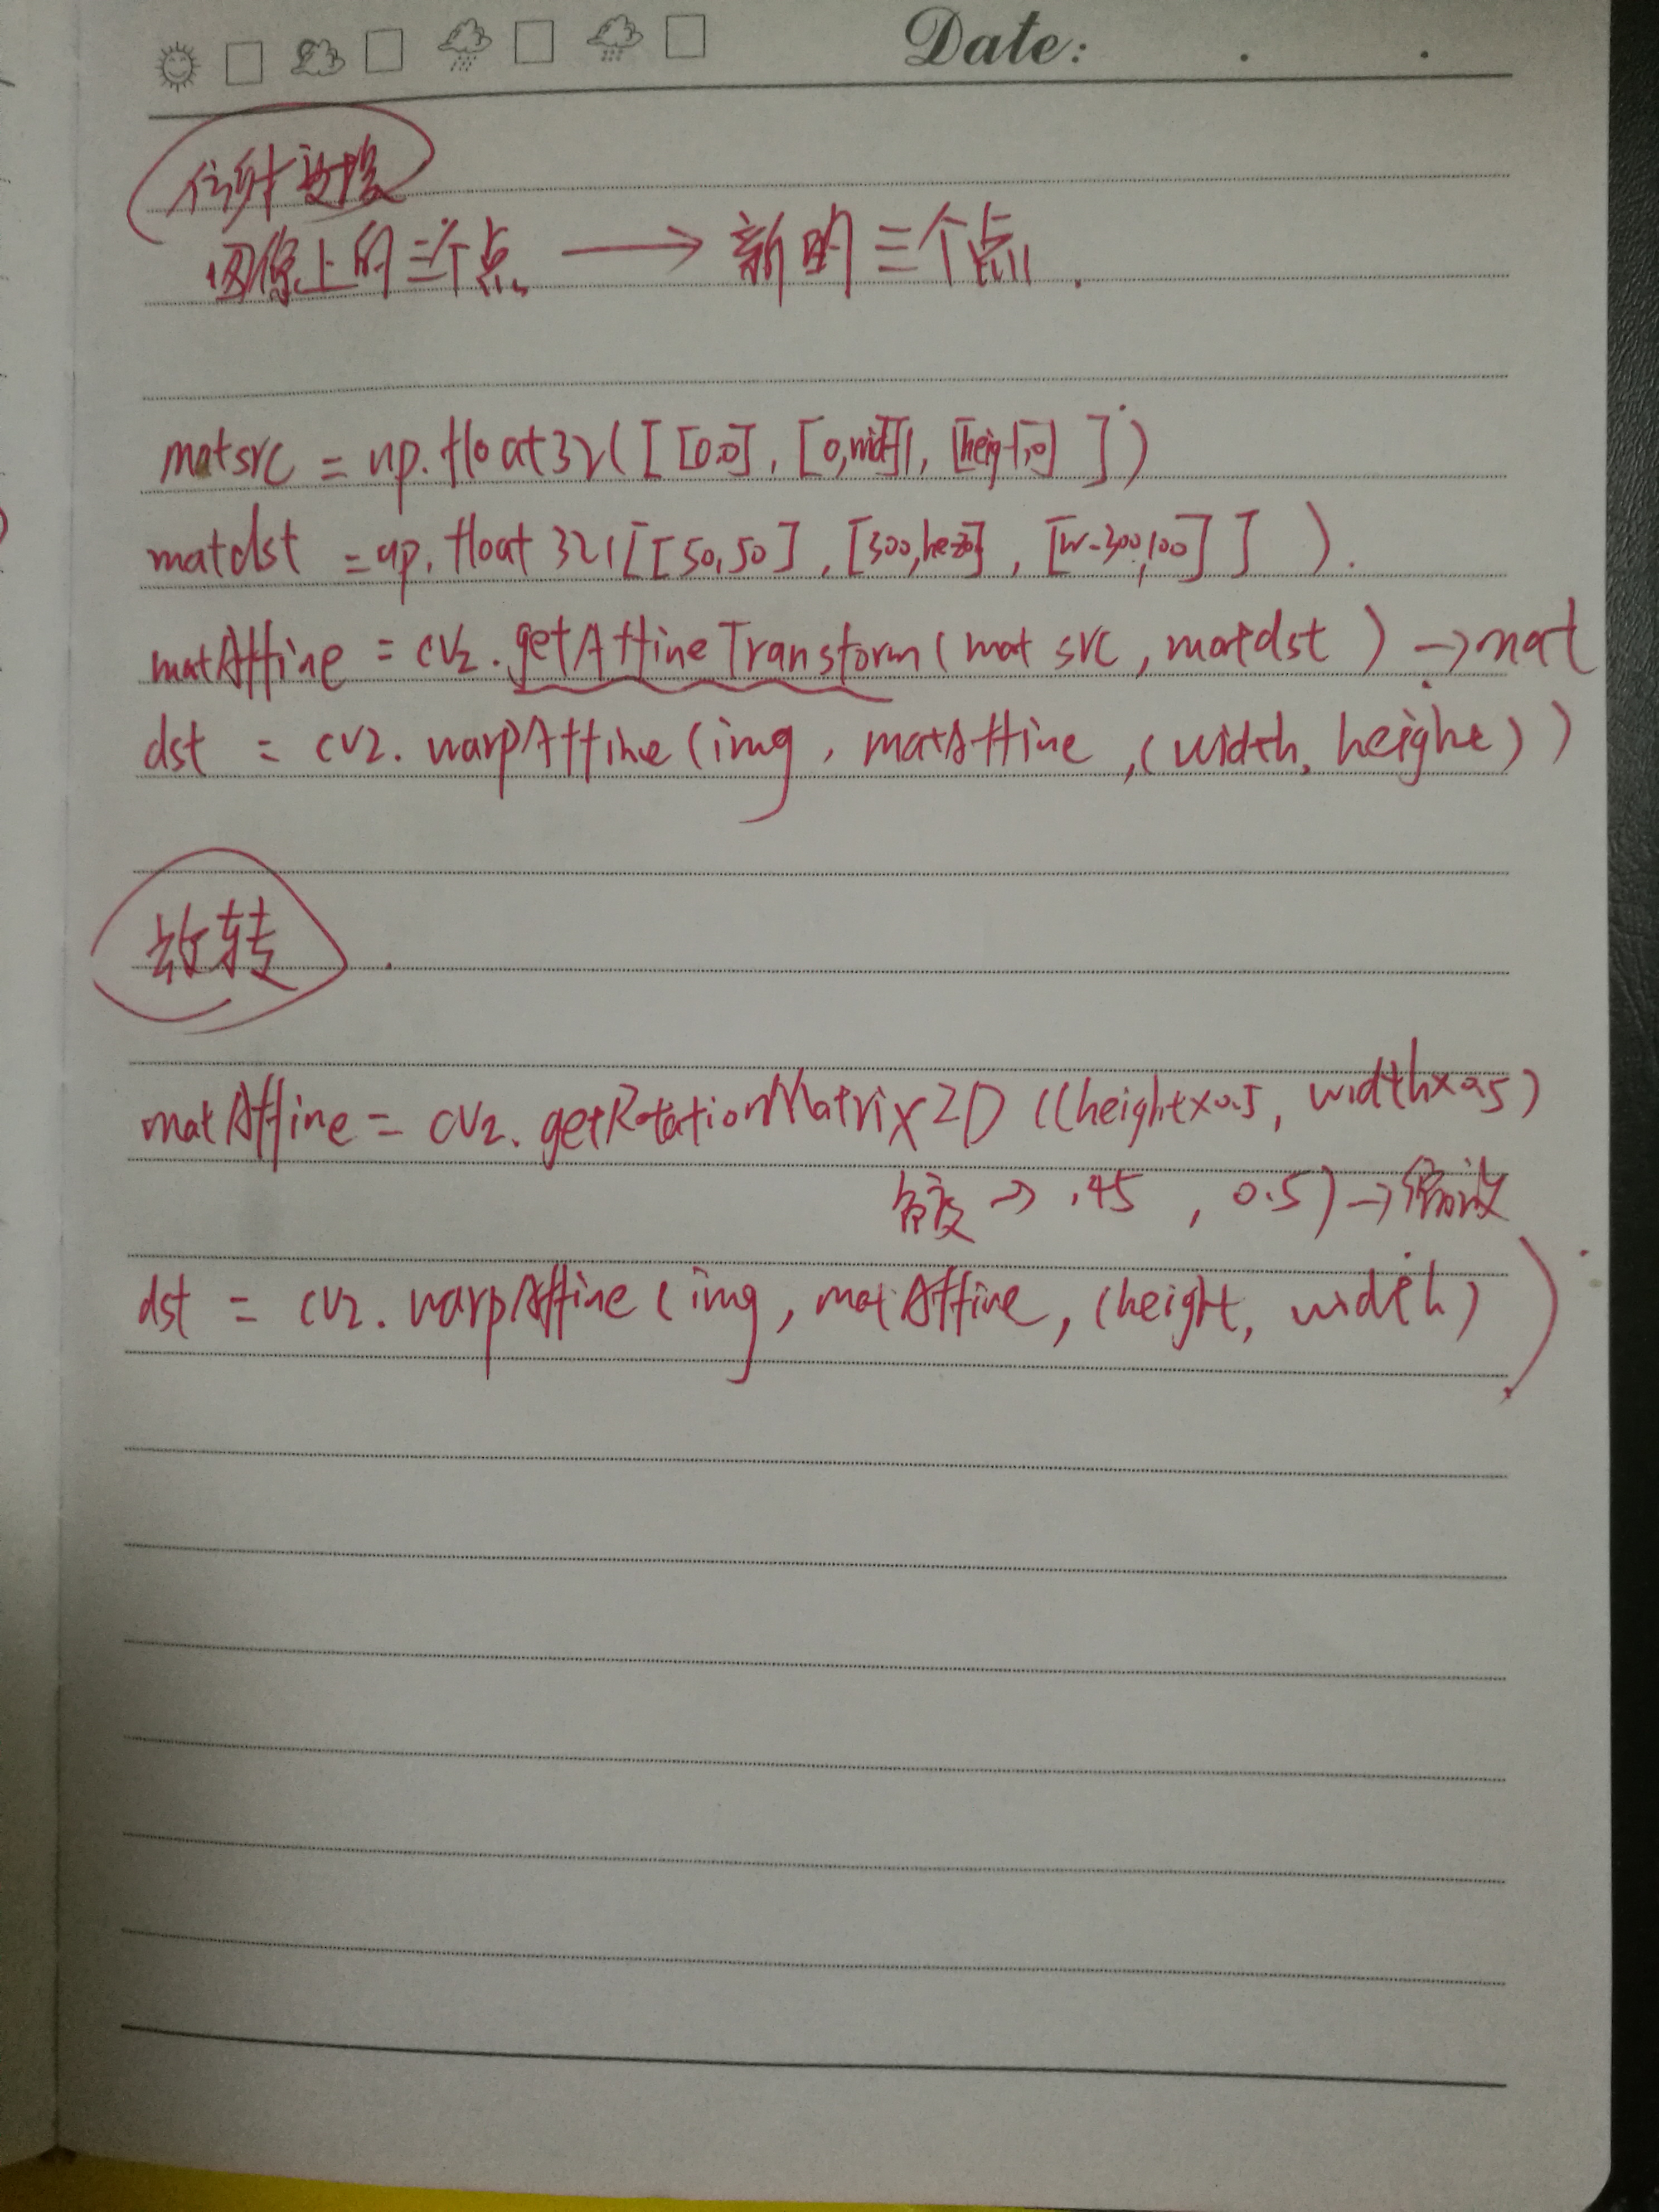 Date:
仿射变换
图像上的三个点 → 新的三个点.
matsrc = np.float32([[0,0],[0,width],[heigt,0]])
matdst = np.float32([[50,50],[300,he-],[w-300,100]]).
matAffine = cv2.getAffineTransform(mat src, matdst) → mat
dst = cv2.warpAffine(img, matAffine,(width, height))
旋转.
matAffine = cv2.getRotationMatrix2D((height×0.5, width×0.5)
角度 → .45 , 0.5) →
dst = cv2.warpAffine(img, matAffine, (height, width))